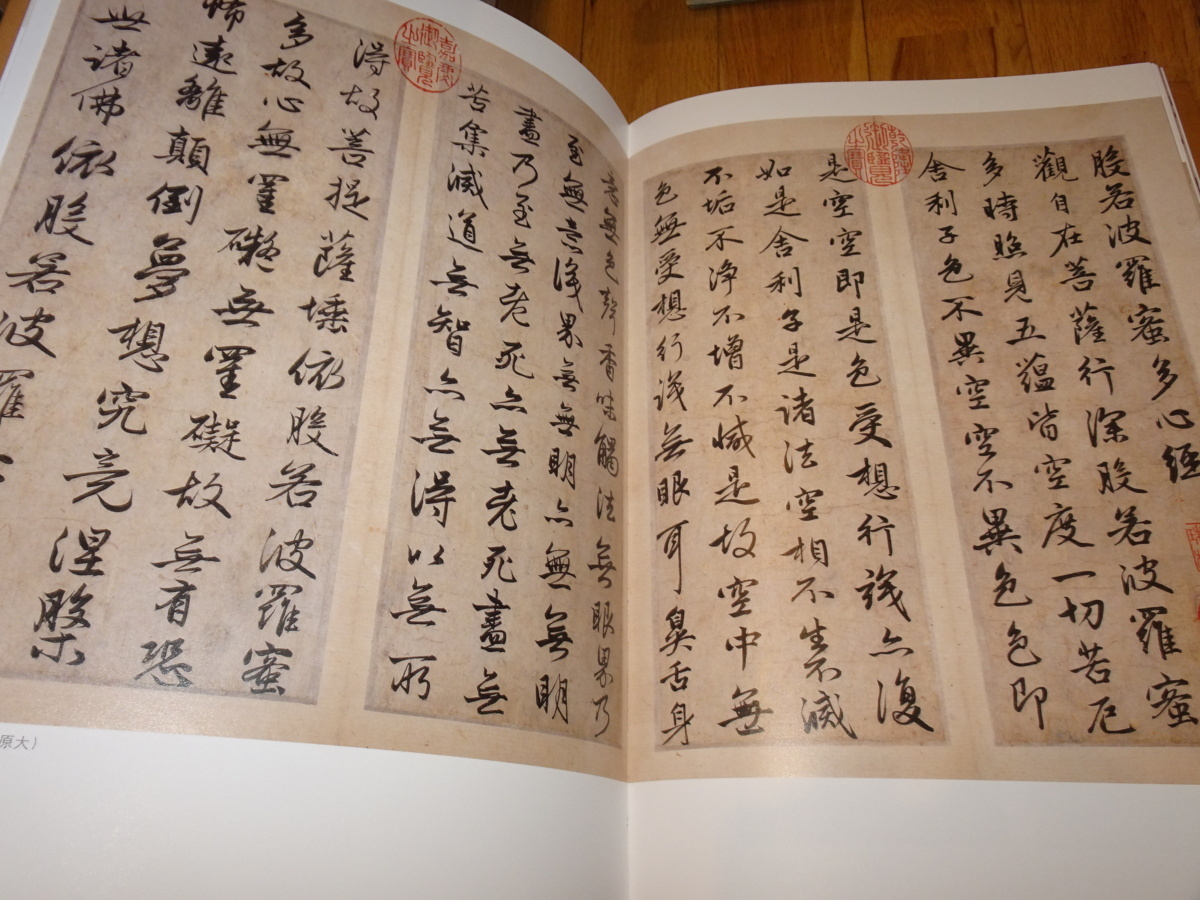 般若波羅蜜多心經
觀自在菩薩行深般若波羅蜜
多時照見五蘊皆空度一切苦厄
舍利子色不異空空不異色色即
是空空即是色受想行識亦復
如是舍利子是諸法空相不生不滅
不垢不淨不增不減是故空中無
色無受想行識無眼耳鼻舌身
意無色聲香味觸法無眼界乃
至無意識界無無明亦無無明
盡乃至無老死亦無老死盡無
苦集滅道無智亦無得以無所
得故菩提薩埵依般若波羅蜜
多故心無罣礙無罣礙故無有恐
怖遠離顛倒夢想究竟涅槃
世諸佛依般若波羅
乾隆御覽之寶
嘉慶御覽之寶
原大）